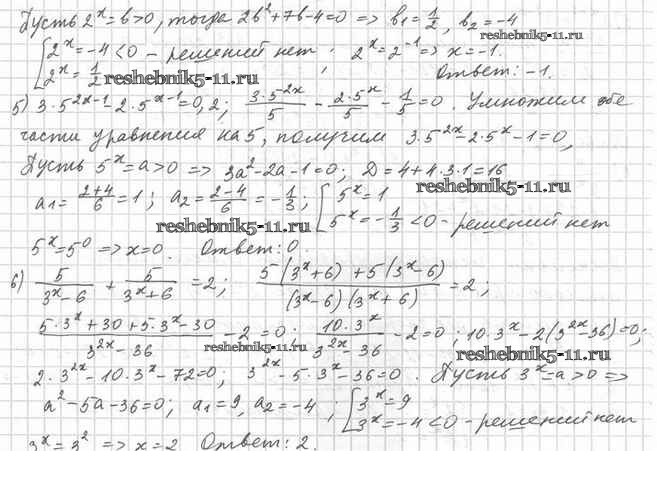 Пусть 2^x = b > 0, тогда 2b² + 7b - 4 = 0 => b₁ = 1/2, b₂ = -4
[2^x = -4 < 0 - решений нет ; 2^x = 2^-1 => x = -1.
[2^x = 1/2 reshebnik5-11.ru Ответ: -1. reshebnik5-11.ru
5) 3·5^(2x-1) - 2·5^(x-1) = 0,2; (3·5^(2x))/5 - (2·5^x)/5 - 1/5 = 0. Умножим обе
части уравнения на 5, получим 3·5^(2x) - 2·5^x - 1 = 0,
Пусть 5^x = a > 0 => 3a² - 2a - 1 = 0; D = 4 + 4·3·1 = 16
reshebnik5-11.ru
a₁ = (2+4)/6 = 1; a₂ = (2-4)/6 = -1/3; [5^x = 1
[5^x = -1/3 < 0 - решений нет
reshebnik5-11.ru reshebnik5-11.ru
5^x = 5^0 => x = 0. Ответ: 0.
6) 5/(3^x - 6) + 5/(3^x + 6) = 2; (5(3^x + 6) + 5(3^x - 6))/((3^x - 6)(3^x + 6)) = 2;
(5·3^x + 30 + 5·3^x - 30)/(3^(2x) - 36) - 2 = 0; (10·3^x)/(3^(2x) - 36) - 2 = 0; 10·3^x - 2(3^(2x) - 36) = 0;
reshebnik5-11.ru reshebnik5-11.ru
2·3^(2x) - 10·3^x - 72 = 0; 3^(2x) - 5·3^x - 36 = 0. Пусть 3^x = a > 0 =>
a² - 5a - 36 = 0; a₁ = 9, a₂ = -4; [3^x = 9
[3^x = -4 < 0 - решений нет
3^x = 3² => x = 2. Ответ: 2.